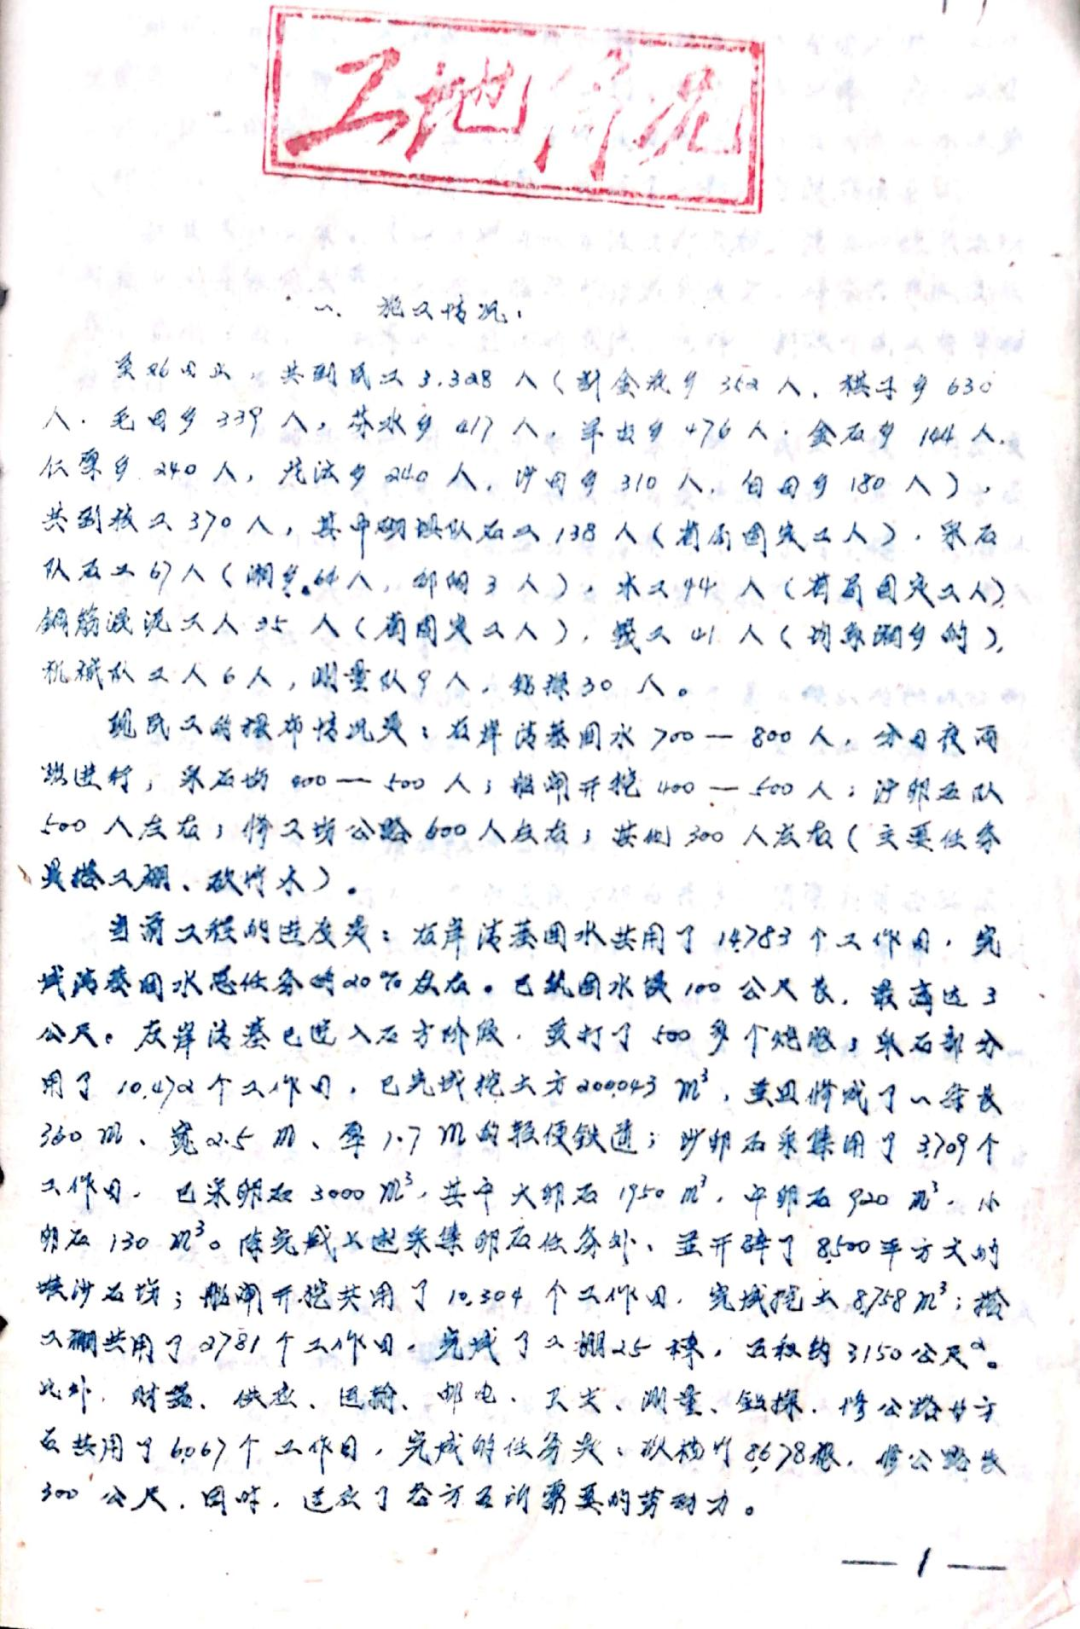 工地情况
一、施工情况：
至26日止，共到民工3.328人（到金农乡352人，棋子乡630
人，毛田乡339人，茶水乡417人，羊古乡476人，金石乡144人，
仁里乡240人，花沃乡240人，沙田乡310人，白田乡180人），
共到技工370人，其中砌填队石工138人（省局固定工人），采石
队石工67人（湖乡64人，邵阳3人），木工44人（省局固定工人）
钢筋混泥工人35人（省固定工人），铁工41人（均系湖乡的），
机械队工人6人，测量队9人，钻探30人。
现民工的摆布情况是：右岸清基围水700—800人，分日夜两
班进行，采石场400—500人；船闸开挖400—500人；沙卵石队
500人左右；修工场公路600人左右；其他300人左右（主要任务
是搭工棚、砍竹木）。
当前工程的进度是：右岸清基围水共用了14,783个工作日，完
成清基围水总任务的20%左右。已筑围水堤100公尺长，最高达3
公尺。左岸清基已进入石方阶段，并打了500多个炮眼；采石部分
用了10,472个工作日，已完成挖土方20,0043m³，并且修成了一条长
360m、宽2.5m、厚1.7m的轻便铁道；沙卵石采集用了3,709个
工作日，已采卵石3000m³，其中大卵石1950m³，中卵石920m³，小
卵石130m³。除完成上述采集卵石任务外，並开辟了8,500平方丈的
堆沙石场；船闸开挖共用了10,304个工作日，完成挖土8,758m³；搭
工棚共用了2781个工作日，完成了工棚25栋，面积约3150公尺²。
此外，财基、供应、运输、邮电、卫生、测量、钻探、修公路等方
面共用了6,067个工作日，完成的任务是：砍楠竹8,678根，修公路长
300公尺，同时，送应了各方面所需要的劳动力。
—1—